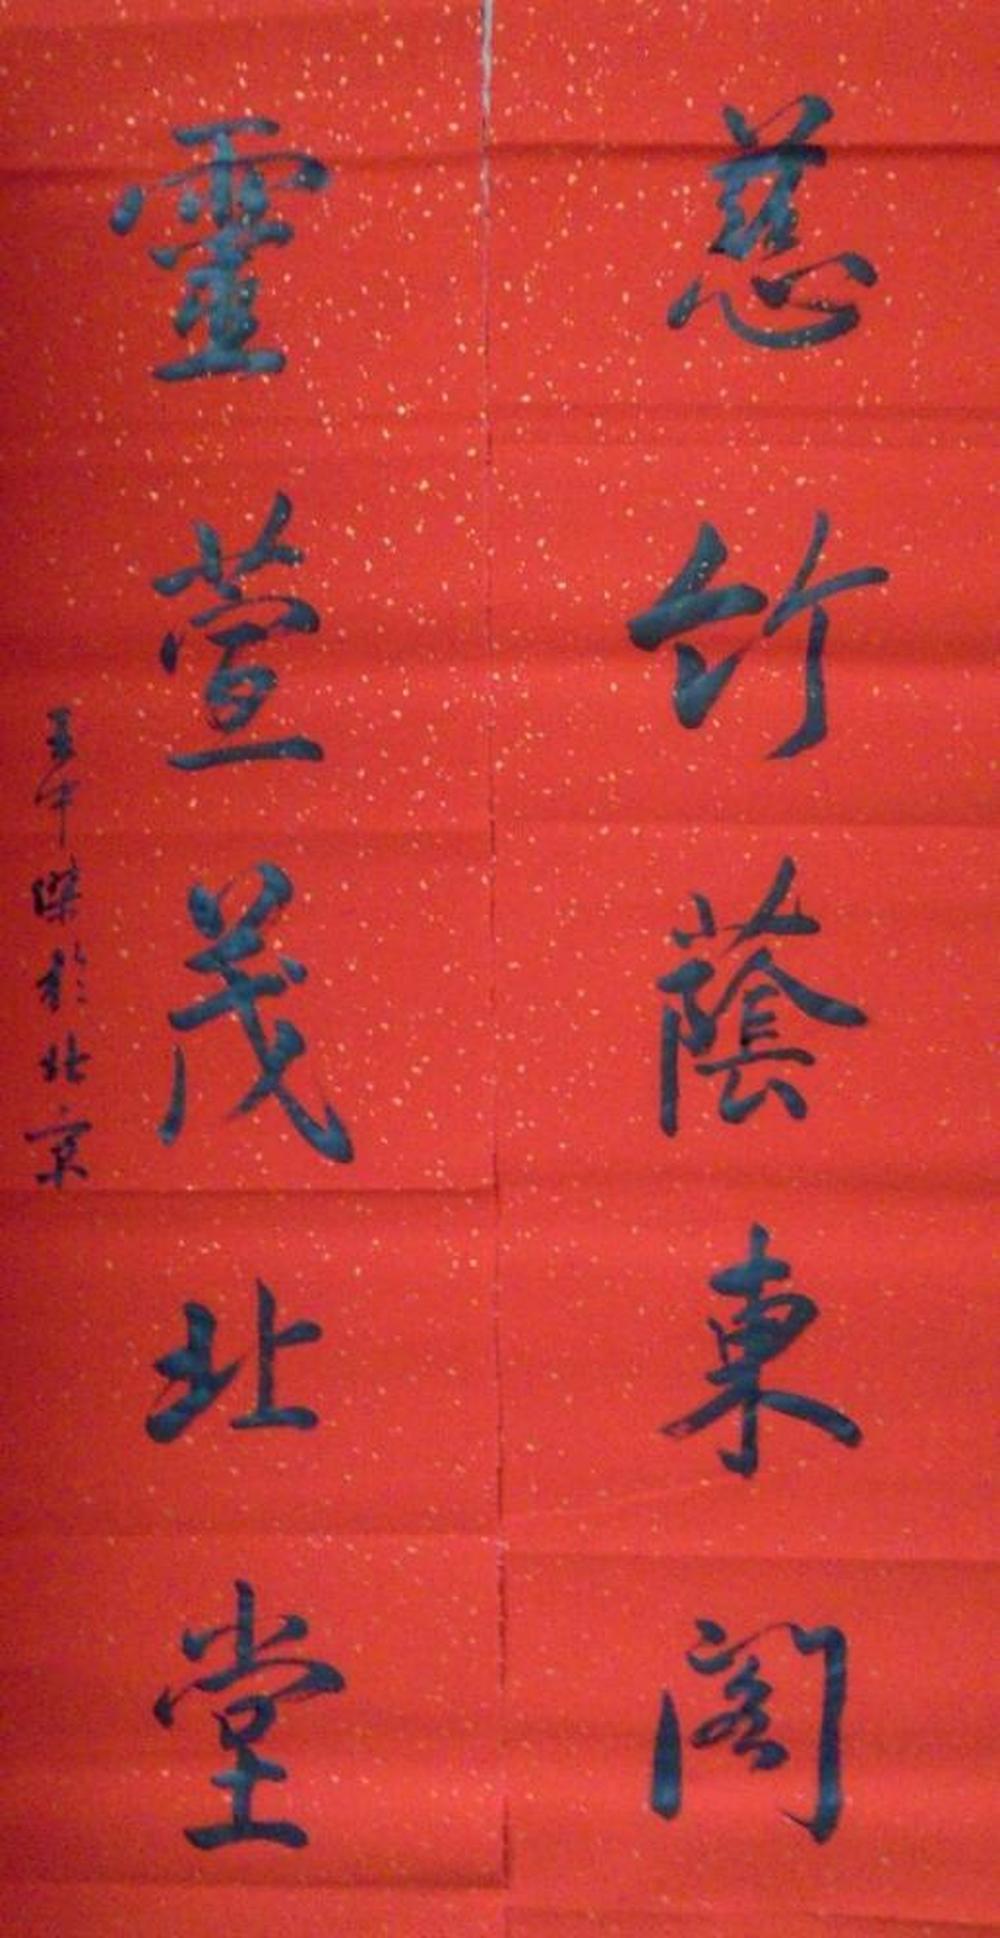 慈竹蔭東閣
靈萱茂北堂
王中傑於北京